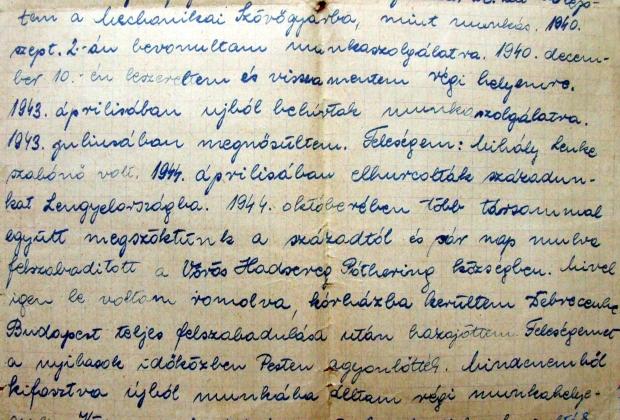 tem a Mechanikai Szövőgyárba, mint munkás. 1940.
szept. 2-án bevonultam munkaszolgálatra. 1940. decem-
ber 10.-én leszereltem és visszamentem régi helyemre.
1943. áprilisában ujból behívtak munkaszolgálatra.
1943. juliusában megnősültem. Feleségem: Mihály Lenke
szabónő volt. 1944. áprilisában elhurcolták századun-
kat Lengyelországba. 1944. októberében több társammal
együtt megszöktünk a századtól és pár nap mulva
felszabadított a Vörös Hadsereg Póthering községben. Mivel
igen le voltam romolva, kórházba kerültem Debrecenbe
Budapest teljes felszabadulása után hazajöttem. Feleségemet
a nyilasok időközben Pesten agyonlőtték. Mindenemből
kifosztva újból munkába álltam régi munkahelye-